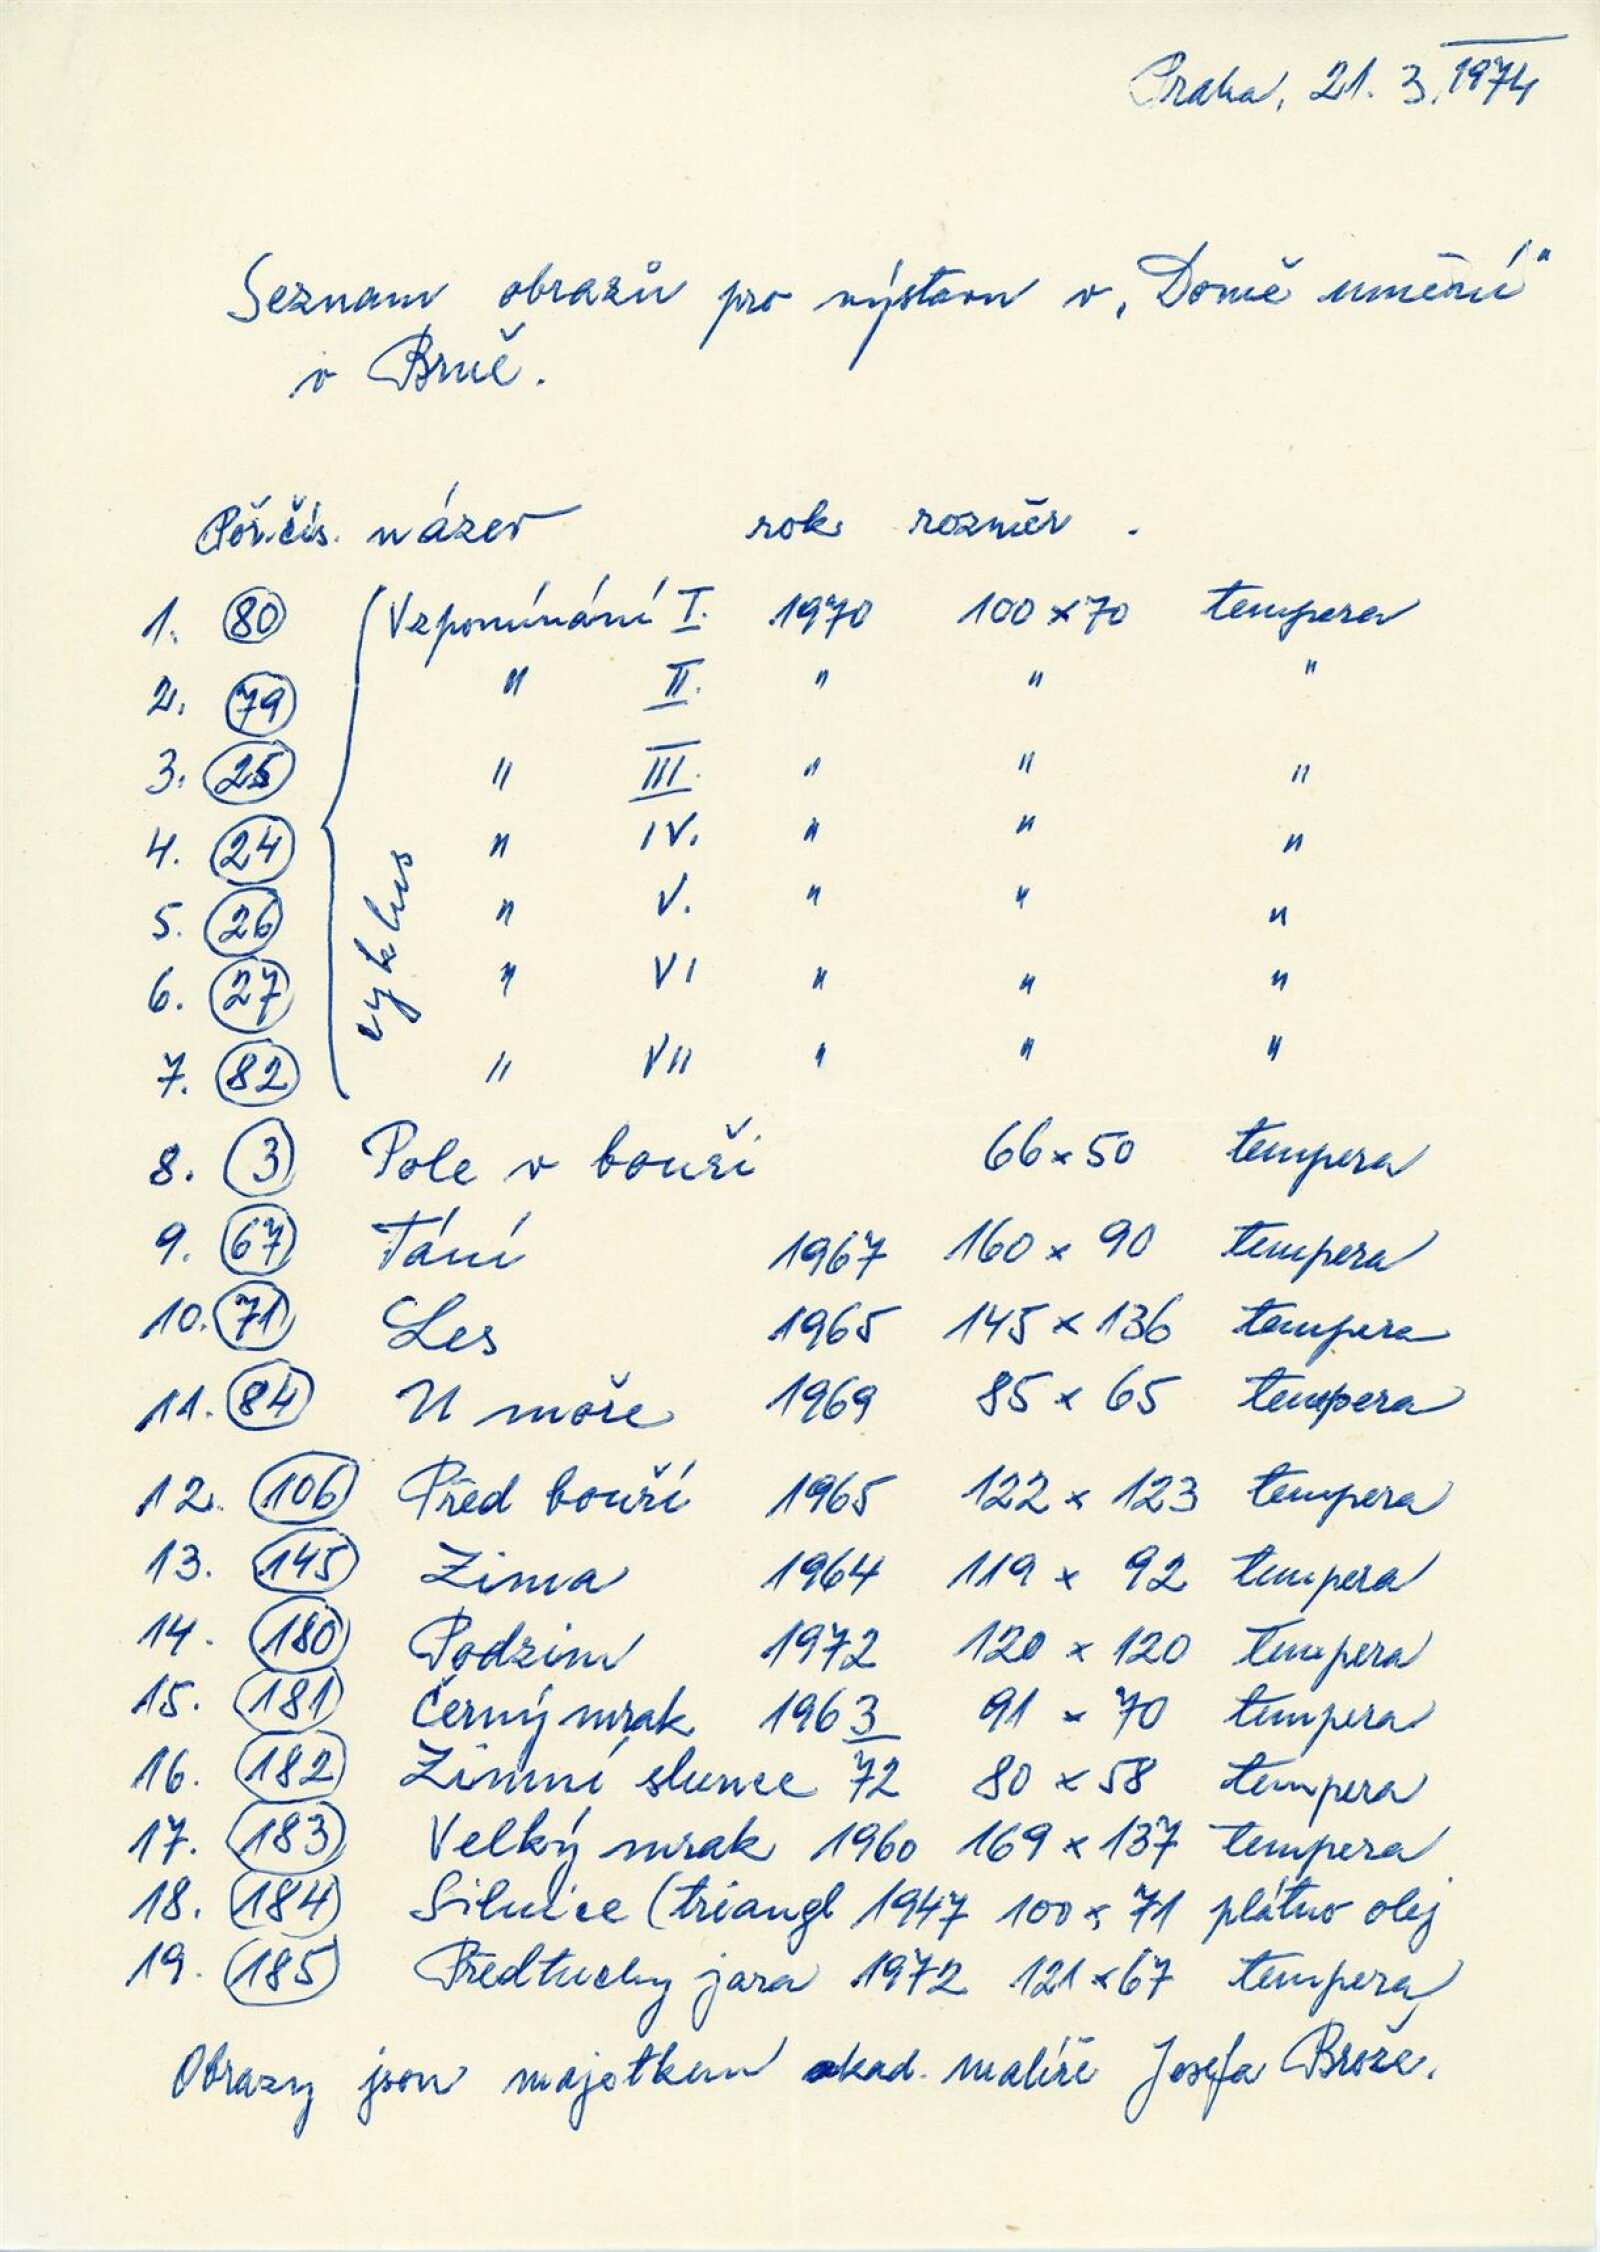 Praha, 21. 3. 1974
Seznam obrazů pro výstavu v „Domě umění"
v Brně.
Poř. čís. název rok rozměr.
1. 80 Vzpomínání I. 1970 100 x 70 tempera
2. 79 " II. " " "
3. 25 " III. " " "
4. 24 " IV. " " "
5. 26 " V. " " "
6. 27 " VI " " "
7. 82 " VII " " "
cyklus
8. 3 Pole v bouři 66 x 50 tempera
9. 67 Tání 1967 160 x 90 tempera
10. 71 Les 1965 145 x 136 tempera
11. 84 U moře 1969 85 x 65 tempera
12. 106 Před bouří 1965 122 x 123 tempera
13. 145 Zima 1964 119 x 92 tempera
14. 180 Podzim 1972 120 x 120 tempera
15. 181 Černý mrak 1963 91 x 70 tempera
16. 182 Zimní slunce 72 80 x 58 tempera
17. 183 Velký mrak 1960 169 x 137 tempera
18. 184 Silnice (triangl 1947 100 x 71 plátno olej
19. 185 Předtuchy jara 1972 121 x 67 tempera
Obrazy jsou majetkem akad. malíře Josefa Brože.